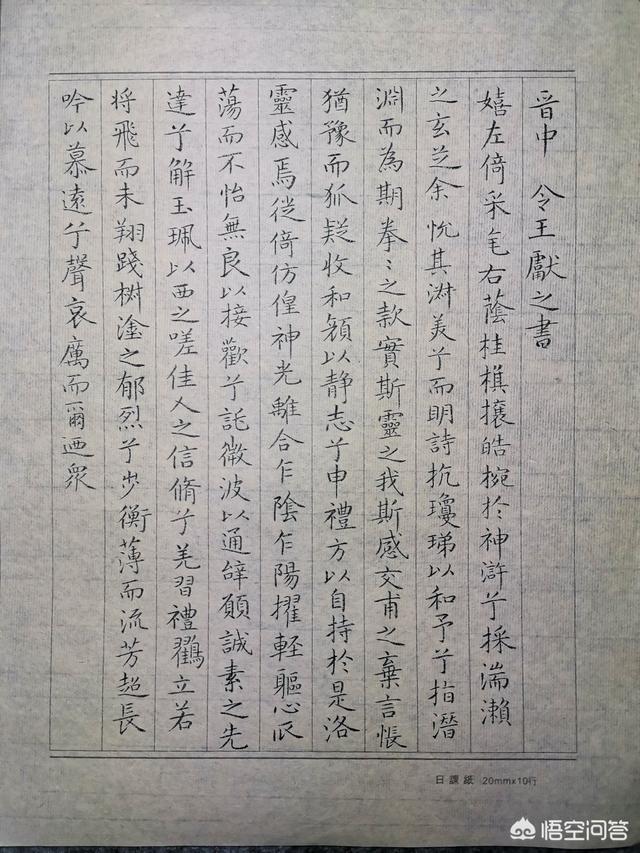 晋中 令王獻之書
嬉左倚采旄右蔭桂棋攘皓椀於神滸兮採湍瀨
之玄芝余悦其淑美兮而明詩抗瓊珶以和予兮指潛
淵而為期拳〻之款實斯靈之我斯感交甫之棄言悵
猶豫而狐疑收和顏以静志兮申禮方以自持於是洛
靈感焉從倚仿偟神光離合乍陰乍陽擢輕軀心
蕩而不怡無良以接歡兮託微波以通辭願誠素之先
達兮解玉珮以西之嗟佳人之信脩兮羌習禮立若
将飛而未翔踐樹塗之郁烈兮步衡薄而流芳超長
吟以慕遠兮聲哀厲而爾迺衆
日課紙 20mm×10行
悟空问答